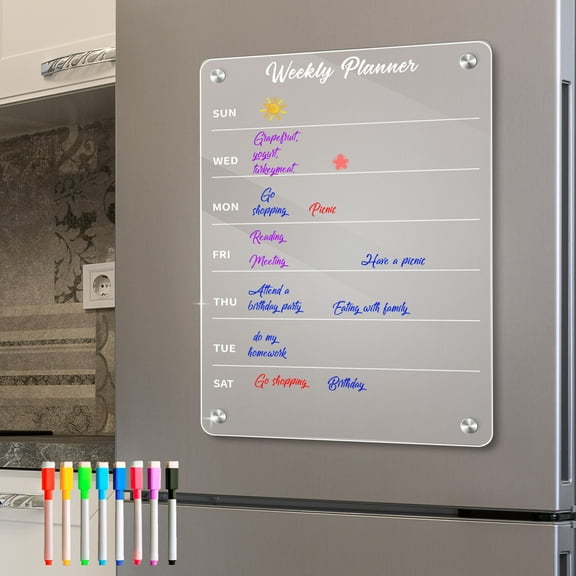 Weekly Planner
SUN
WED
Grapefruit,
yogurt,
turkeymeat.
MON
Go
shopping
Picnic
FRI
Reading
Meeting
Have a picnic
THU
Attend a
birthday party
Eating with family
TUE
do my
homework
SAT
Go shopping
Birthday